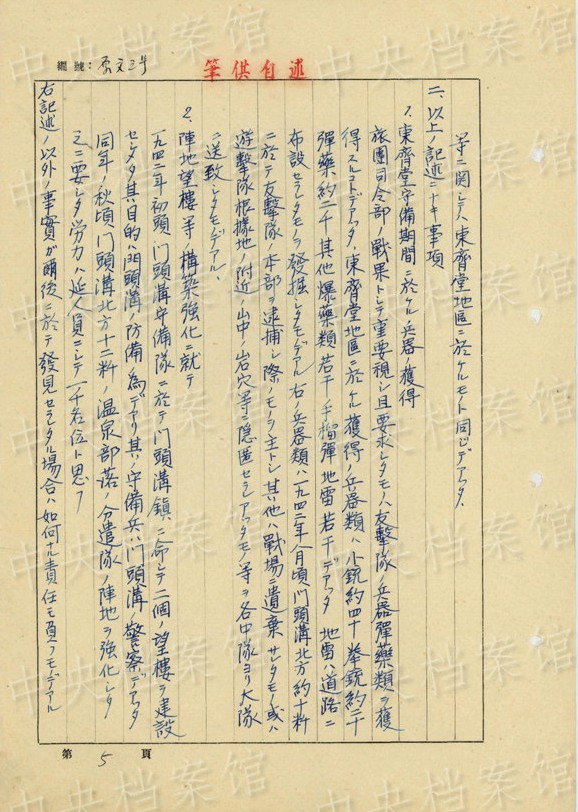 欄號：
筆供自述
等ニ関シテハ東齊堂地區ニ於ケルモノト同ジデアッタ、
二、以上ノ記述ニナキ事項
1. 東齊堂守備期間ニ於ケル兵器ノ獲得
旅團司令部ノ戰果トシテ重要視シ且要求シタモノハ友擊隊ノ兵器彈藥類ヲ獲
得スルコトデアッタ、東齊堂地區ニ於ケル獲得ノ兵器類ハ小銃約四十拳銃約二十
彈藥約二千其他爆藥類若干手榴彈地雷若干デアッタ 地雷ハ道路ニ
布設セラレタモノヲ發掘シタモノデアル 右ノ兵器類ハ一九四二年八月頃門頭溝北方約十粁
ニ於テ友擊隊ノ本部ヲ逮捕シ際ノモノヲ主トシ其ノ他ハ戰場ニ遺棄サレタモノ或ハ
遊擊隊根據地ノ附近ノ山中ノ岩穴等ニ隱匿セラレアッタモノ等ヲ各中隊ヨリ大隊
ニ送致シタモノデアル、
2. 陣地望樓等ノ構築強化ニ就テ
一九四二年初頭門頭溝守備隊ニ於テ門頭溝鎮ニ命シテ二個ノ望樓ヲ建設
セシメタ其ノ目的ハ門頭溝ノ防備ノ為デアリ其ノ守備兵ハ門頭溝ノ警察デアッタ
同年ノ秋頃門頭溝北方十二粁ノ温泉部落ノ分遣隊ノ陣地ヲ強化シタ
之ニ要シタ労力ハ延人員ニシテ一千名位ト思フ
右記述ノ以外ノ事實ガ爾後ニ於テ發見セラレタル場合ハ如何ナル責任モ負フモノデアル
第 5 頁
中央档案馆